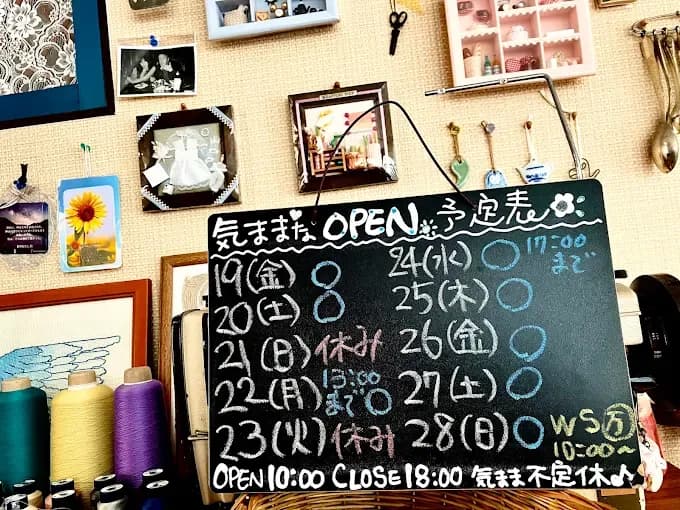 気ままな OPEN 予定表
19(金) ○
20(土) ○
21(日) 休み
22(月) 13:00まで○
23(火) 休み
24(水) ○ 17:00まで
25(木) ○
26(金) ○
27(土) ○
28(日) ○ WS万 10:00~
OPEN10:00 CLOSE18:00 気まま不定休♪